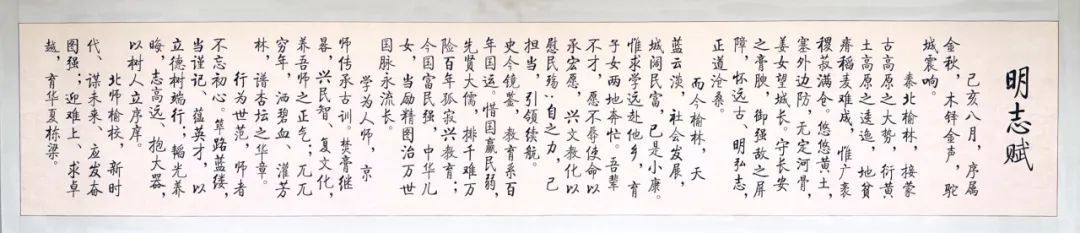 明志赋
己亥八月，序属
金秋，木铎金声，驼
城震响。
秦北榆林，接蒙
古高原之大势，衍黄
土高原之逶迤，地贫
瘠稻麦难成，惟广袤
稷菽满仓。悠悠黄土，
塞外边防，无定河骨，
姜女望城长。守长安
之膏腴，御强敌之屏
障，怀远古、明弘志，
正道沧桑。
而今榆林，天
蓝云淡，社会发展，
城阔民富，已是小康。
惟求学远赴他乡，育
子女两地奔忙。吾辈
不才，愿不辱使命以
承宏愿，兴文教化以
慰民殇：自之力，己
担当，引领续航。
史今镜鉴，教育系百
年国运。惜国羸民弱，
先贤大儒，排千难万
险百年孤寂兴教育；
今国富民强，中华儿
女，当励精图治万世
国脉永流长。
学为人师，京
师传承古训。焚膏继
晷，兴民智、复文化，
养吾师之正气；兀兀
穷年，洒碧血、灌芳
林，谱杏坛之华章。
行为世范，师者
不忘初心。筚路蓝缕，
当谨记、蕴英才，以
立德树端行；韬光养
晦，志高远、抱大器，
以树人立序庠。
北师榆校，新时
代、谋未来、应发奋
图强；迎难上、求卓
越，育华夏栋梁。